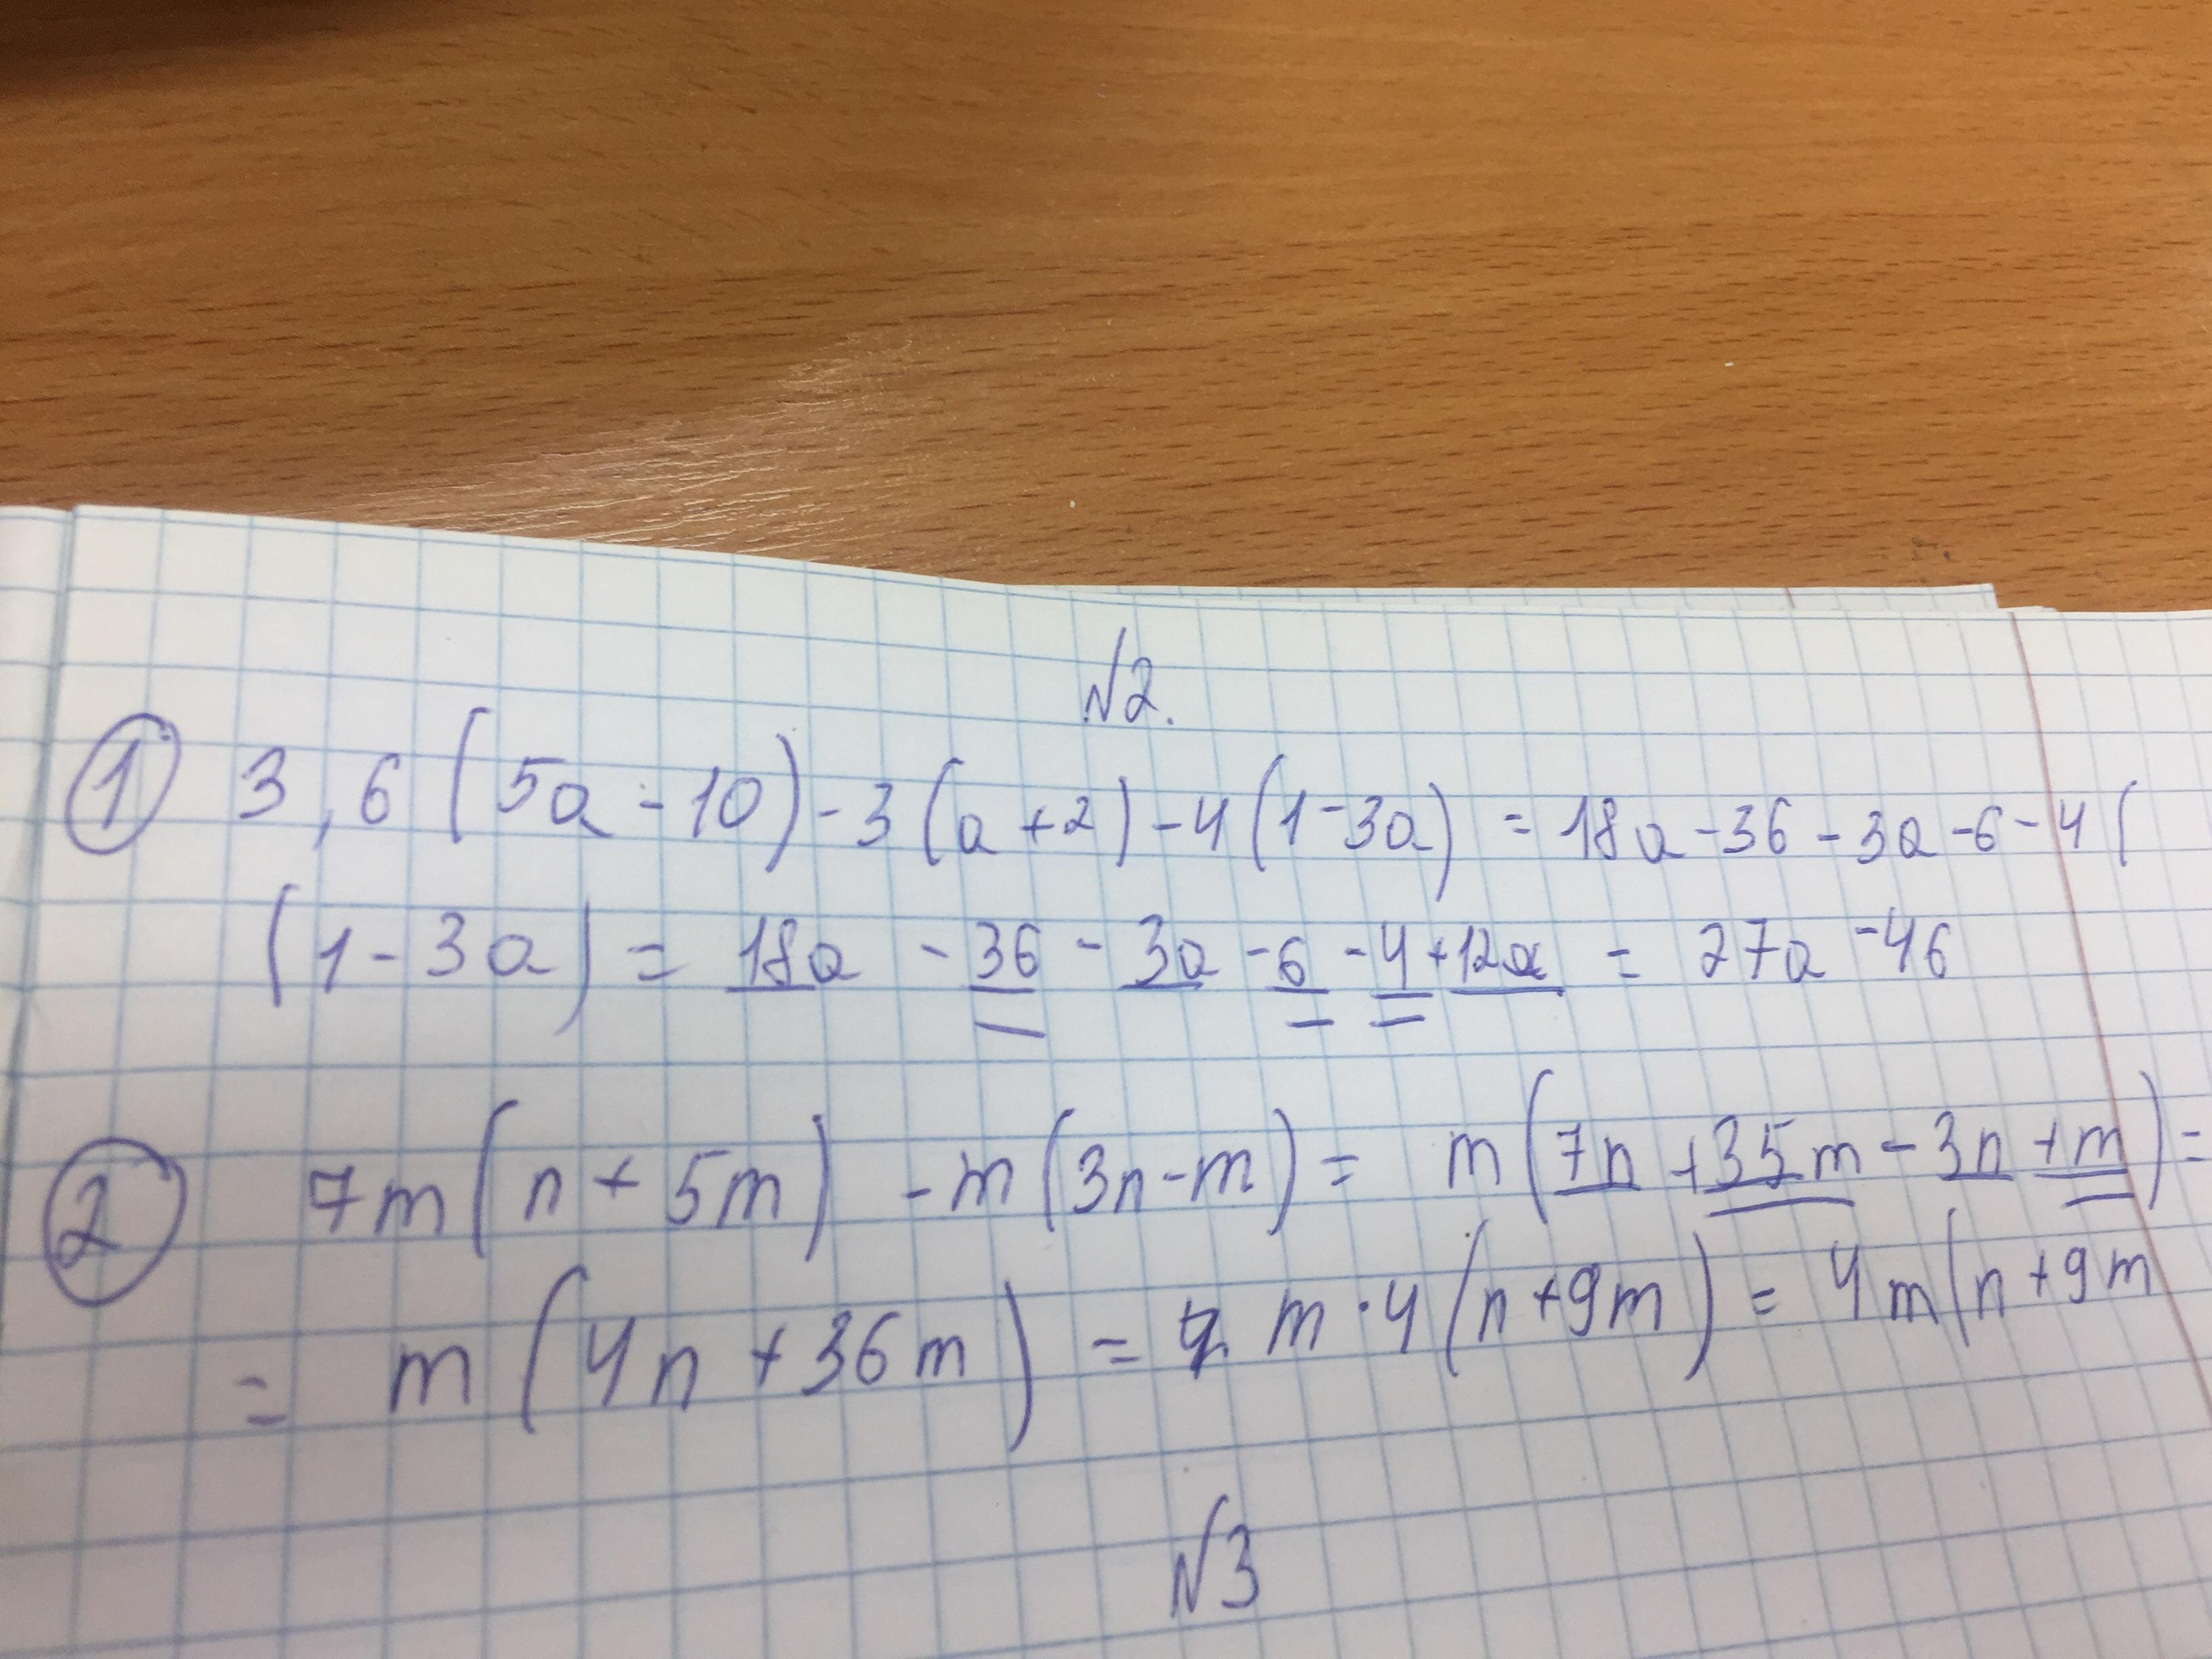 №2.
① 3,6(5a-10)-3(a+2)-4(1-3a) = 18a-36-3a-6-4(
(1-3a) = 18a -36 -3a -6 -4 +12a = 27a -46
② 7m(n+5m) -m(3n-m) = m(7n +35m -3n +m) =
= m(4n+36m) = m·4(n+9m) = 4m(n+9m
№3